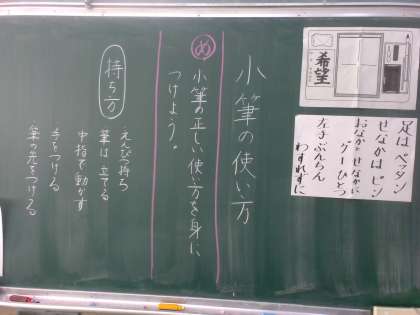 希望
足は ペッタン
せなかは ピン
おなかと せなかに
グー ひとつ
左手 ぶんちん
わすれずに
小筆の使い方
め
小筆の正しい使い方を身に
つけよう。
持ち方
えんぴつ持ち
筆は 立てる
中指で動かす
手をつける
筆の先をつける